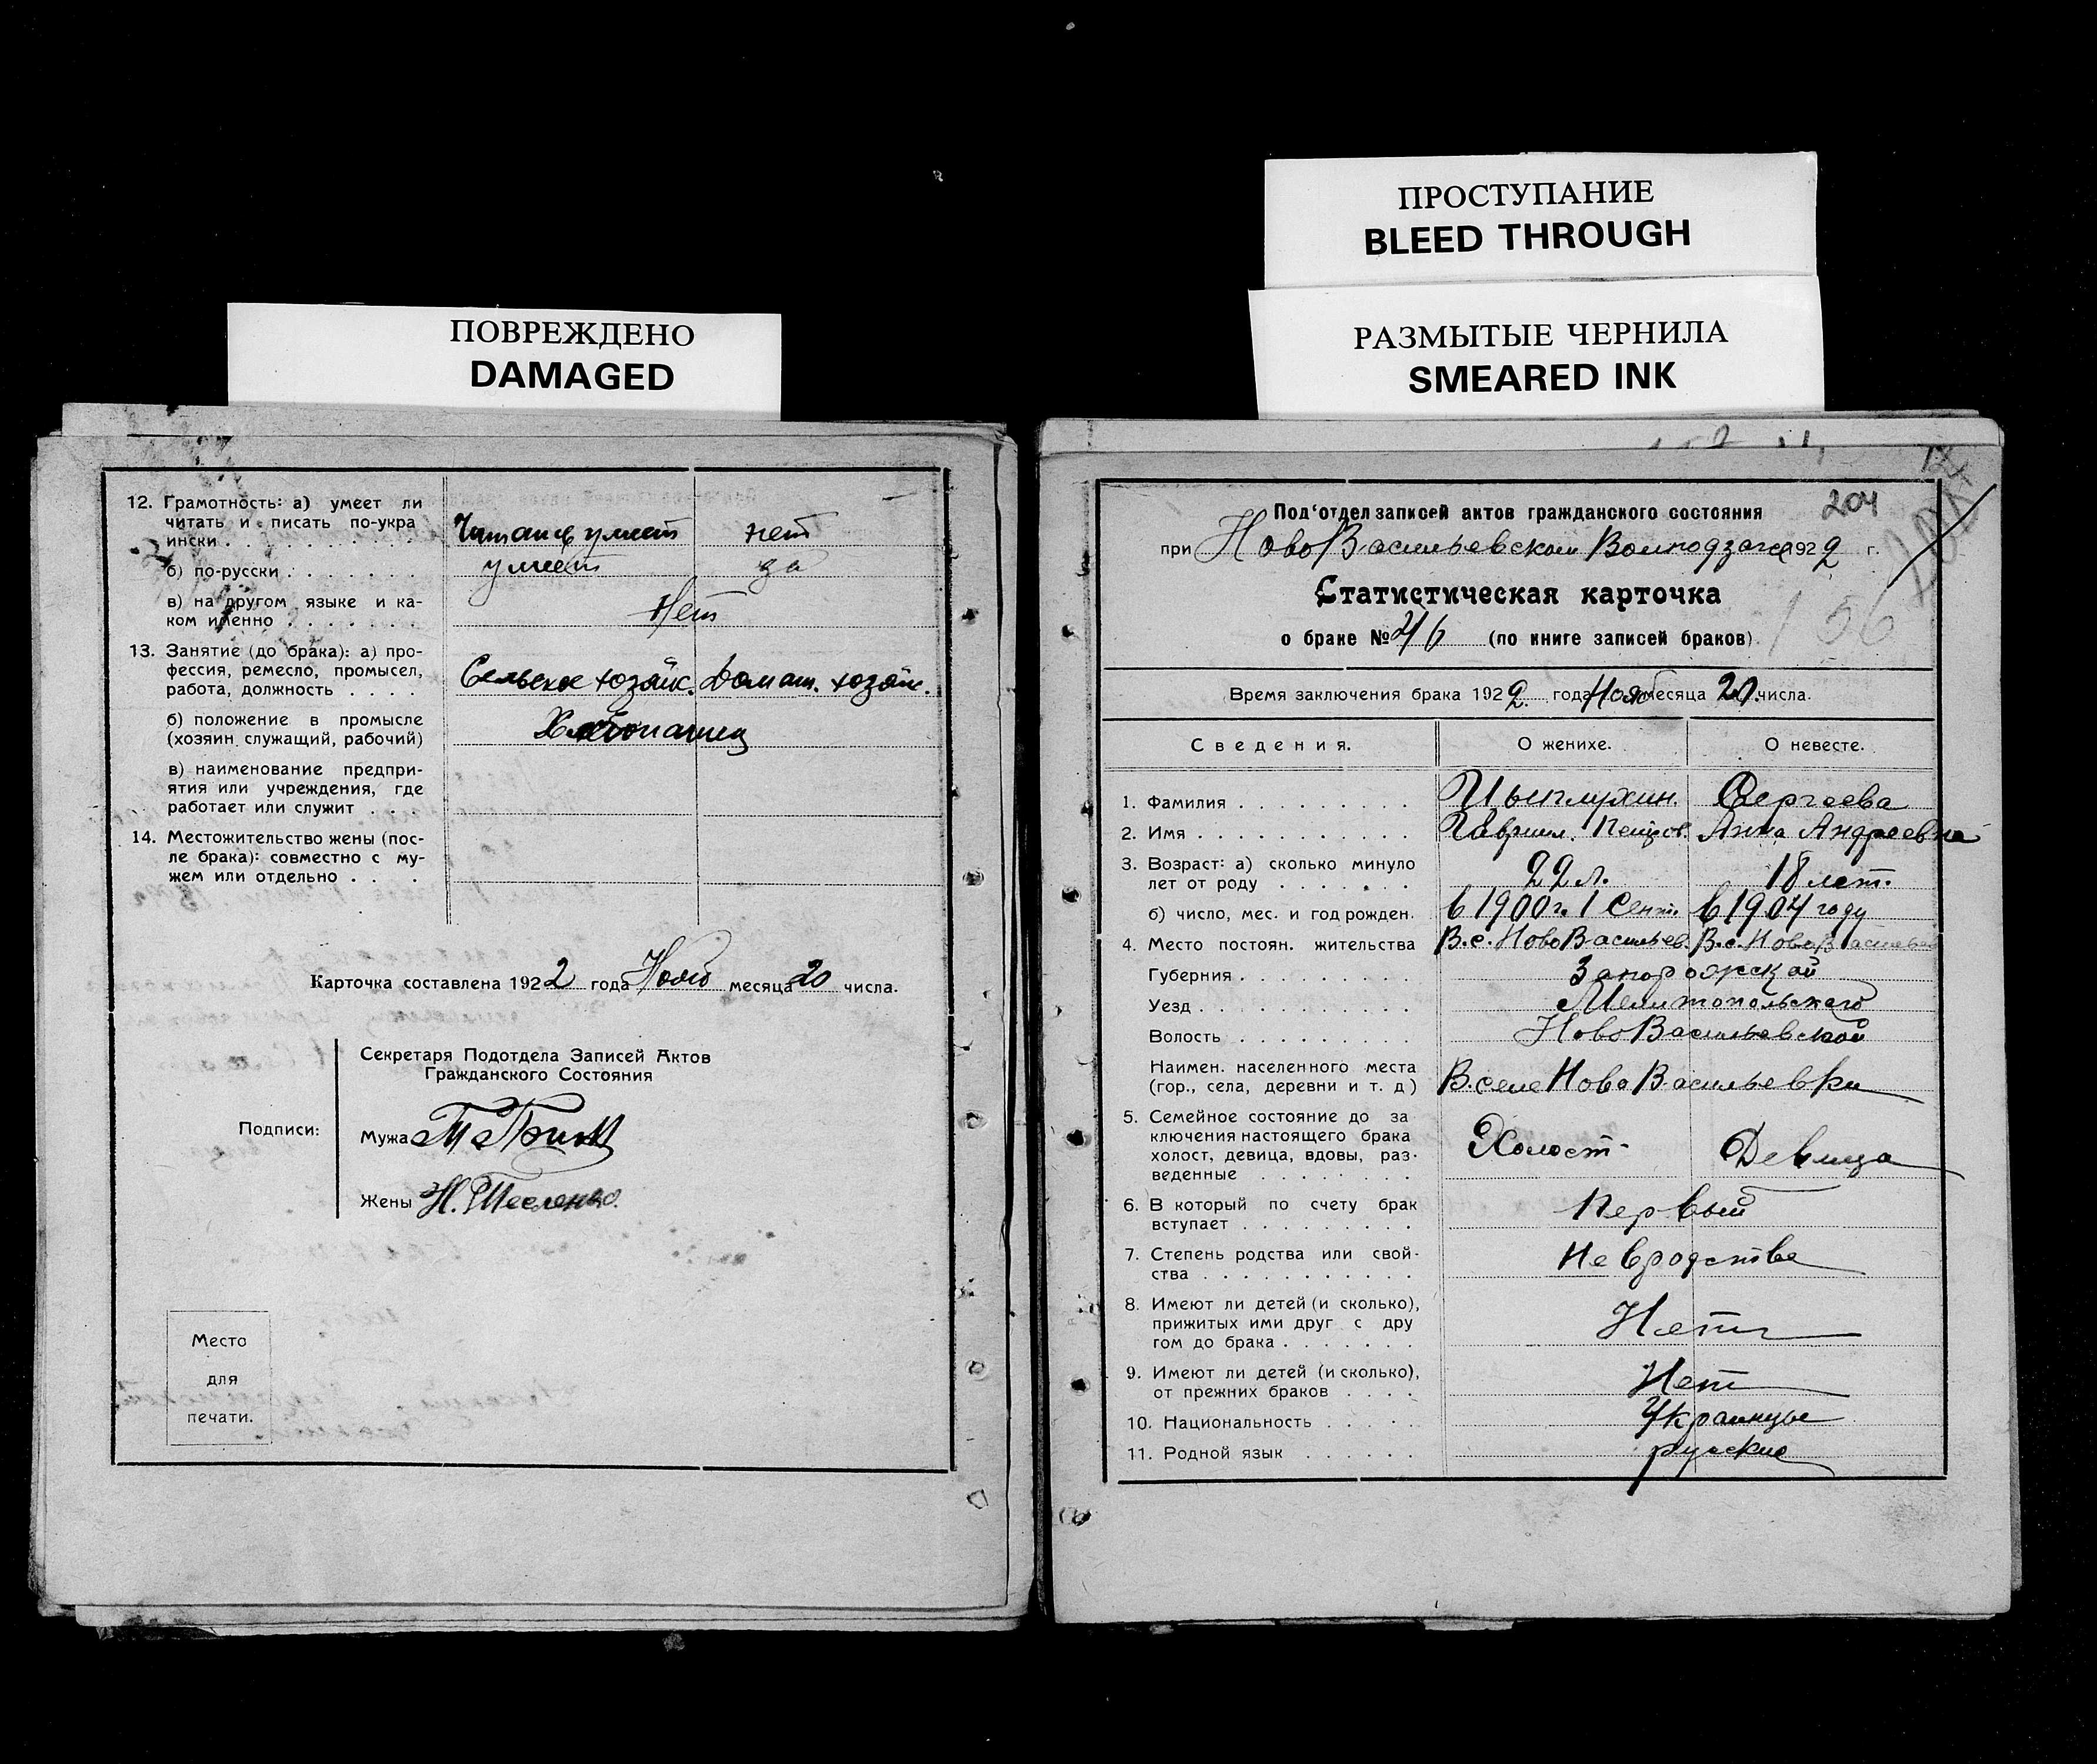 ПОВРЕЖДЕНО
DAMAGED
12. Грамотность: а) умеет ли
читать и писать по-укра
ински . . . . . . . . . . Читать умеет нет
б) по-русски . . . . . . . умеет да
в) на другом языке и ка-
ком именно . . . . . . . Нет
13. Занятие (до брака): а) про-
фессия, ремесло, промысел,
работа, должность . . . . Сельское хозяйс. Домаш. хозяйс.
б) положение в промысле
(хозяин служащий, рабочий) Хлебопашец
в) наименование предпри-
ятия или учреждения, где
работает или служит . . .
14. Местожительство жены (пос-
ле брака): совместно с му-
жем или отдельно . . . .
Карточка составлена 1922 года Нояб месяца 20 числа.
Секретаря Подотдела Записей Актов
Гражданского Состояния
Подписи:
Мужа
Жены Н. Тесленко.
Место
для
печати.
ПРОСТУПАНИЕ
BLEED THROUGH
РАЗМЫТЫЕ ЧЕРНИЛА
SMEARED INK
204
Под'отдел записей актов гражданского состояния
при Ново Васильевском 1922 г.
Статистическая карточка
156
о браке № (по книге записей браков).
Время заключения брака 1922 года Нояб месяца 20 числа.
Сведения. О женихе. О невесте.
1. Фамилия . . . . . . . . . Сергеева
2. Имя . . . . . . . . . . . Гавриил Петров. Анна Андреевна
3. Возраст: а) сколько минуло
лет от роду . . . . . . . 22 л. 18 лет.
б) число, мес. и год рожден. в 1900 г. 1 Сент. в 1904 году
4. Место постоян. жительства В. с. Ново Васильев. В. с. Ново Васильев
Губерния . . . . . . . . . Запорожской
Уезд . . . . . . . . . . . Мелитопольского
Волость . . . . . . . . . Ново Васильевской
Наимен. населенного места
(гор., села, деревни и т. д) В. селе Ново Васильевки
5. Семейное состояние до за
ключения настоящего брака
холост, девица, вдовы, раз-
веденные . . . . . . . . Холост Девица
6. В который по счету брак
вступает . . . . . . . . . Первый
7. Степень родства или свой-
ства . . . . . . . . . . . Не вродстве
8. Имеют ли детей (и сколько),
прижитых ими друг с дру
гом до брака . . . . . . . Нет
9. Имеют ли детей (и сколько),
от прежних браков . . . . Нет
10. Национальность . . . . Украинцы
11. Родной язык . . . . . . русские